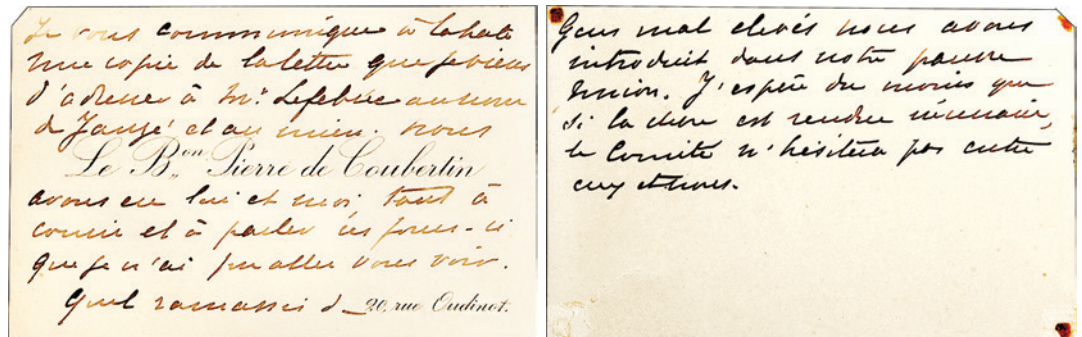 Je vous communique à la hâte
une copie de la lettre que je viens
d'adresser à Mr. Lefebvre au nom
de Janzé et au mien. Nous
Le Bon. Pierre de Coubertin
avons eu lui et moi tant à
courir et à parler ces jours-ci
que je n'ai pu aller vous voir.
Quel ramassis d
20, rue Oudinot.
Gens mal élevés nous avons
introduit dans notre pauvre
Union. J'espère du moins que
si la chose est rendue nécessaire,
le Comité n'hésitera pas entre
eux et nous.